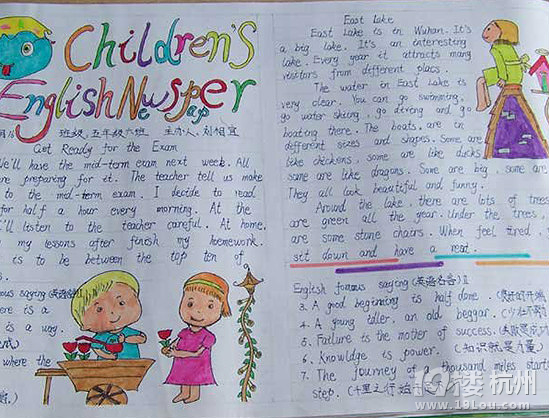 Children's
English Newspaper
班级:五年级六班 主办人:刘相宜
Get Ready for the Exam
We'll have the mid-term exam next week. All
are preparing for it. The teacher tell us make
to the mid-term exam. I decide to read
for half a hour every morning. At the
I'll listen to the teacher careful. At home,
my lessons after finish my homework.
is to be between the top ten of
saying (英语名言) I
ere is a
is a way.
where the
East Lake
East Lake is in Wuhan. It's
a big lake. It's an interesting
lake. Every year it attracts many
visitors from different placs.
The water in East Lake is
very clear. You can go swimming,
go water skiing, go diving and go
boating there. The boats are in
different sizes and shapes. Some are
like chickens, some are like ducks
some are like dragons. Some are big, some are
They all look beautiful and funny.
Around the lake, there are lots of trees
are green all the year. Under the trees,
are some stone chairs. When feel tired,
sit down and have a rest.
English famous saying (英语名言) II
3. A good beginning is half done.
4. A young idler an old beggar.
5. Failure is the mother of success.
6. Knowldge is power. (知识就是力量)
7. The journey of a thousand miles start
step.
19楼 杭州
www.19lou.com